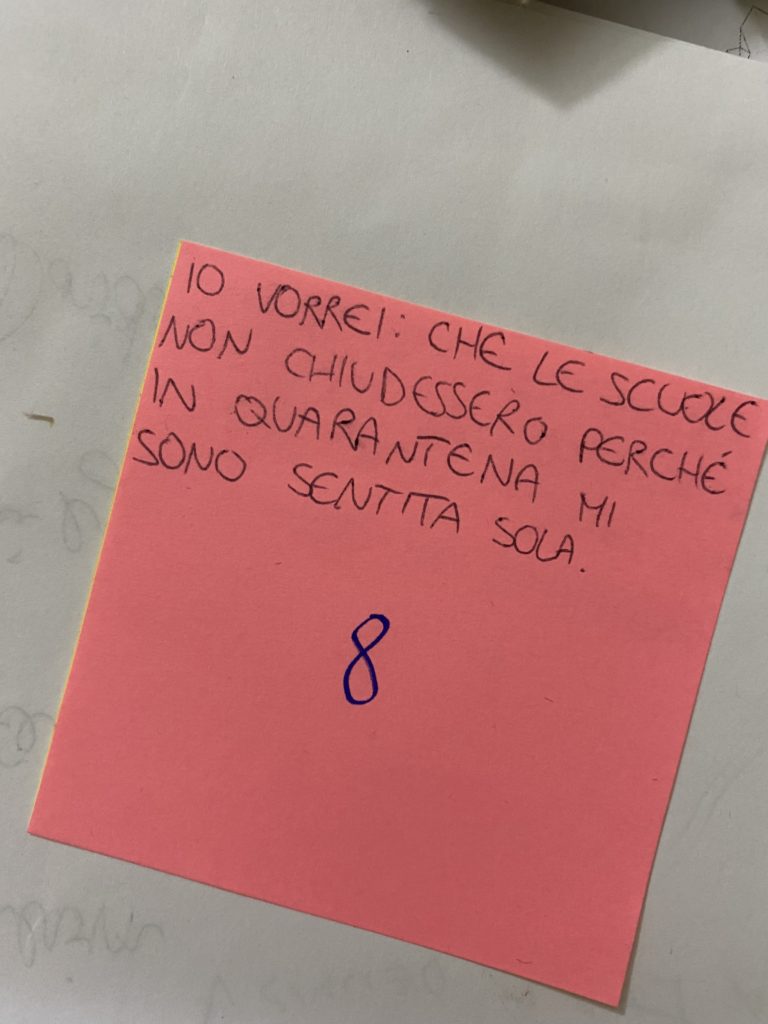 IO VORREI: CHE LE SCUOLE
NON CHIUDESSERO PERCHÉ
IN QUARANTENA MI
SONO SENTITA SOLA.
8